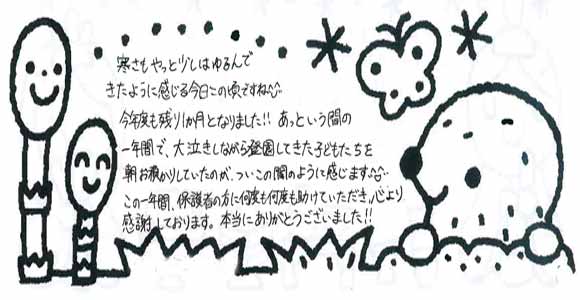 寒さもやっと少しはゆるんで
きたように感じる今日この頃ですね
今年度も残り1か月となりました!! あっという間の
一年間で、大泣きしながら登園してきた子どもたちを
朝お預かりしていたのが、ついこの間のように感じます
この一年間、保護者の方に何度も何度も助けていただき、心より
感謝しております。本当にありがとうございました!!